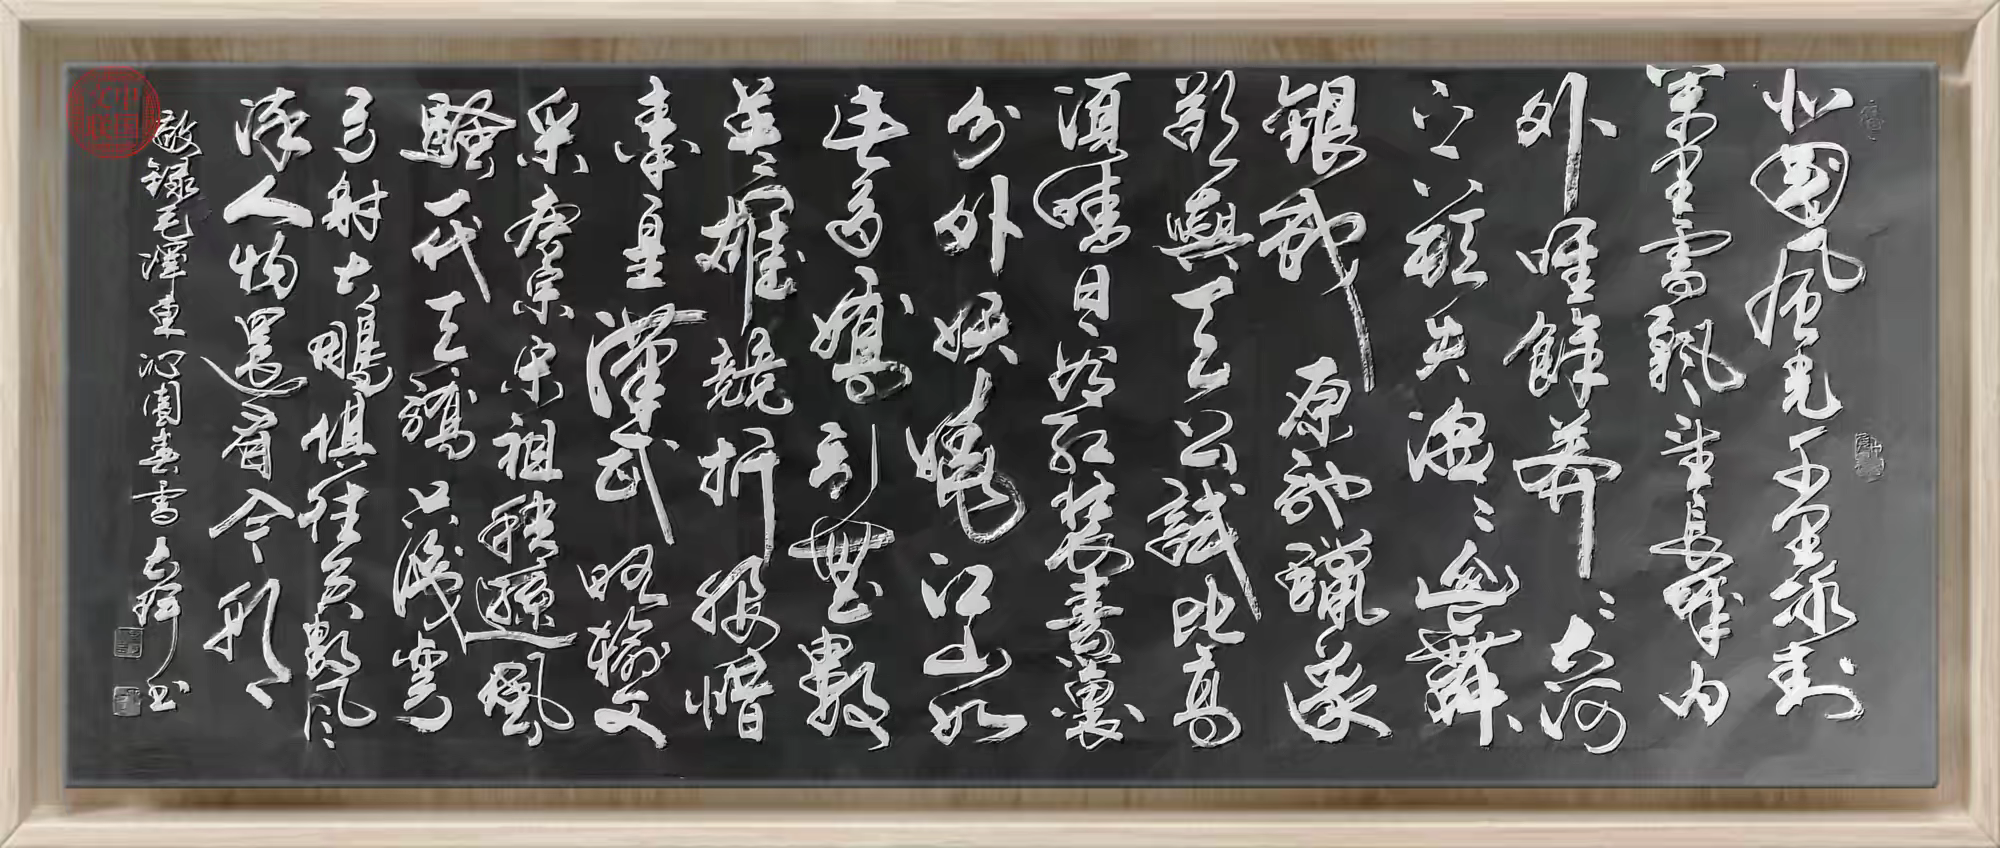 北國風光千里冰封
萬里雪飄望長城内
外唯餘莽々大河
上下頓失滔々山舞
銀蛇原馳蠟象
欲與天公試比高
須晴日看紅裝素裹
分外妖嬈江山如
此多嬌引無數
英雄競折腰惜
秦皇漢武略輸文
采唐宗宋祖稍遜風
騷一代天驕只識彎
弓射大鵰俱往矣數风
流人物還看今朝
敬錄毛澤東沁園春雪